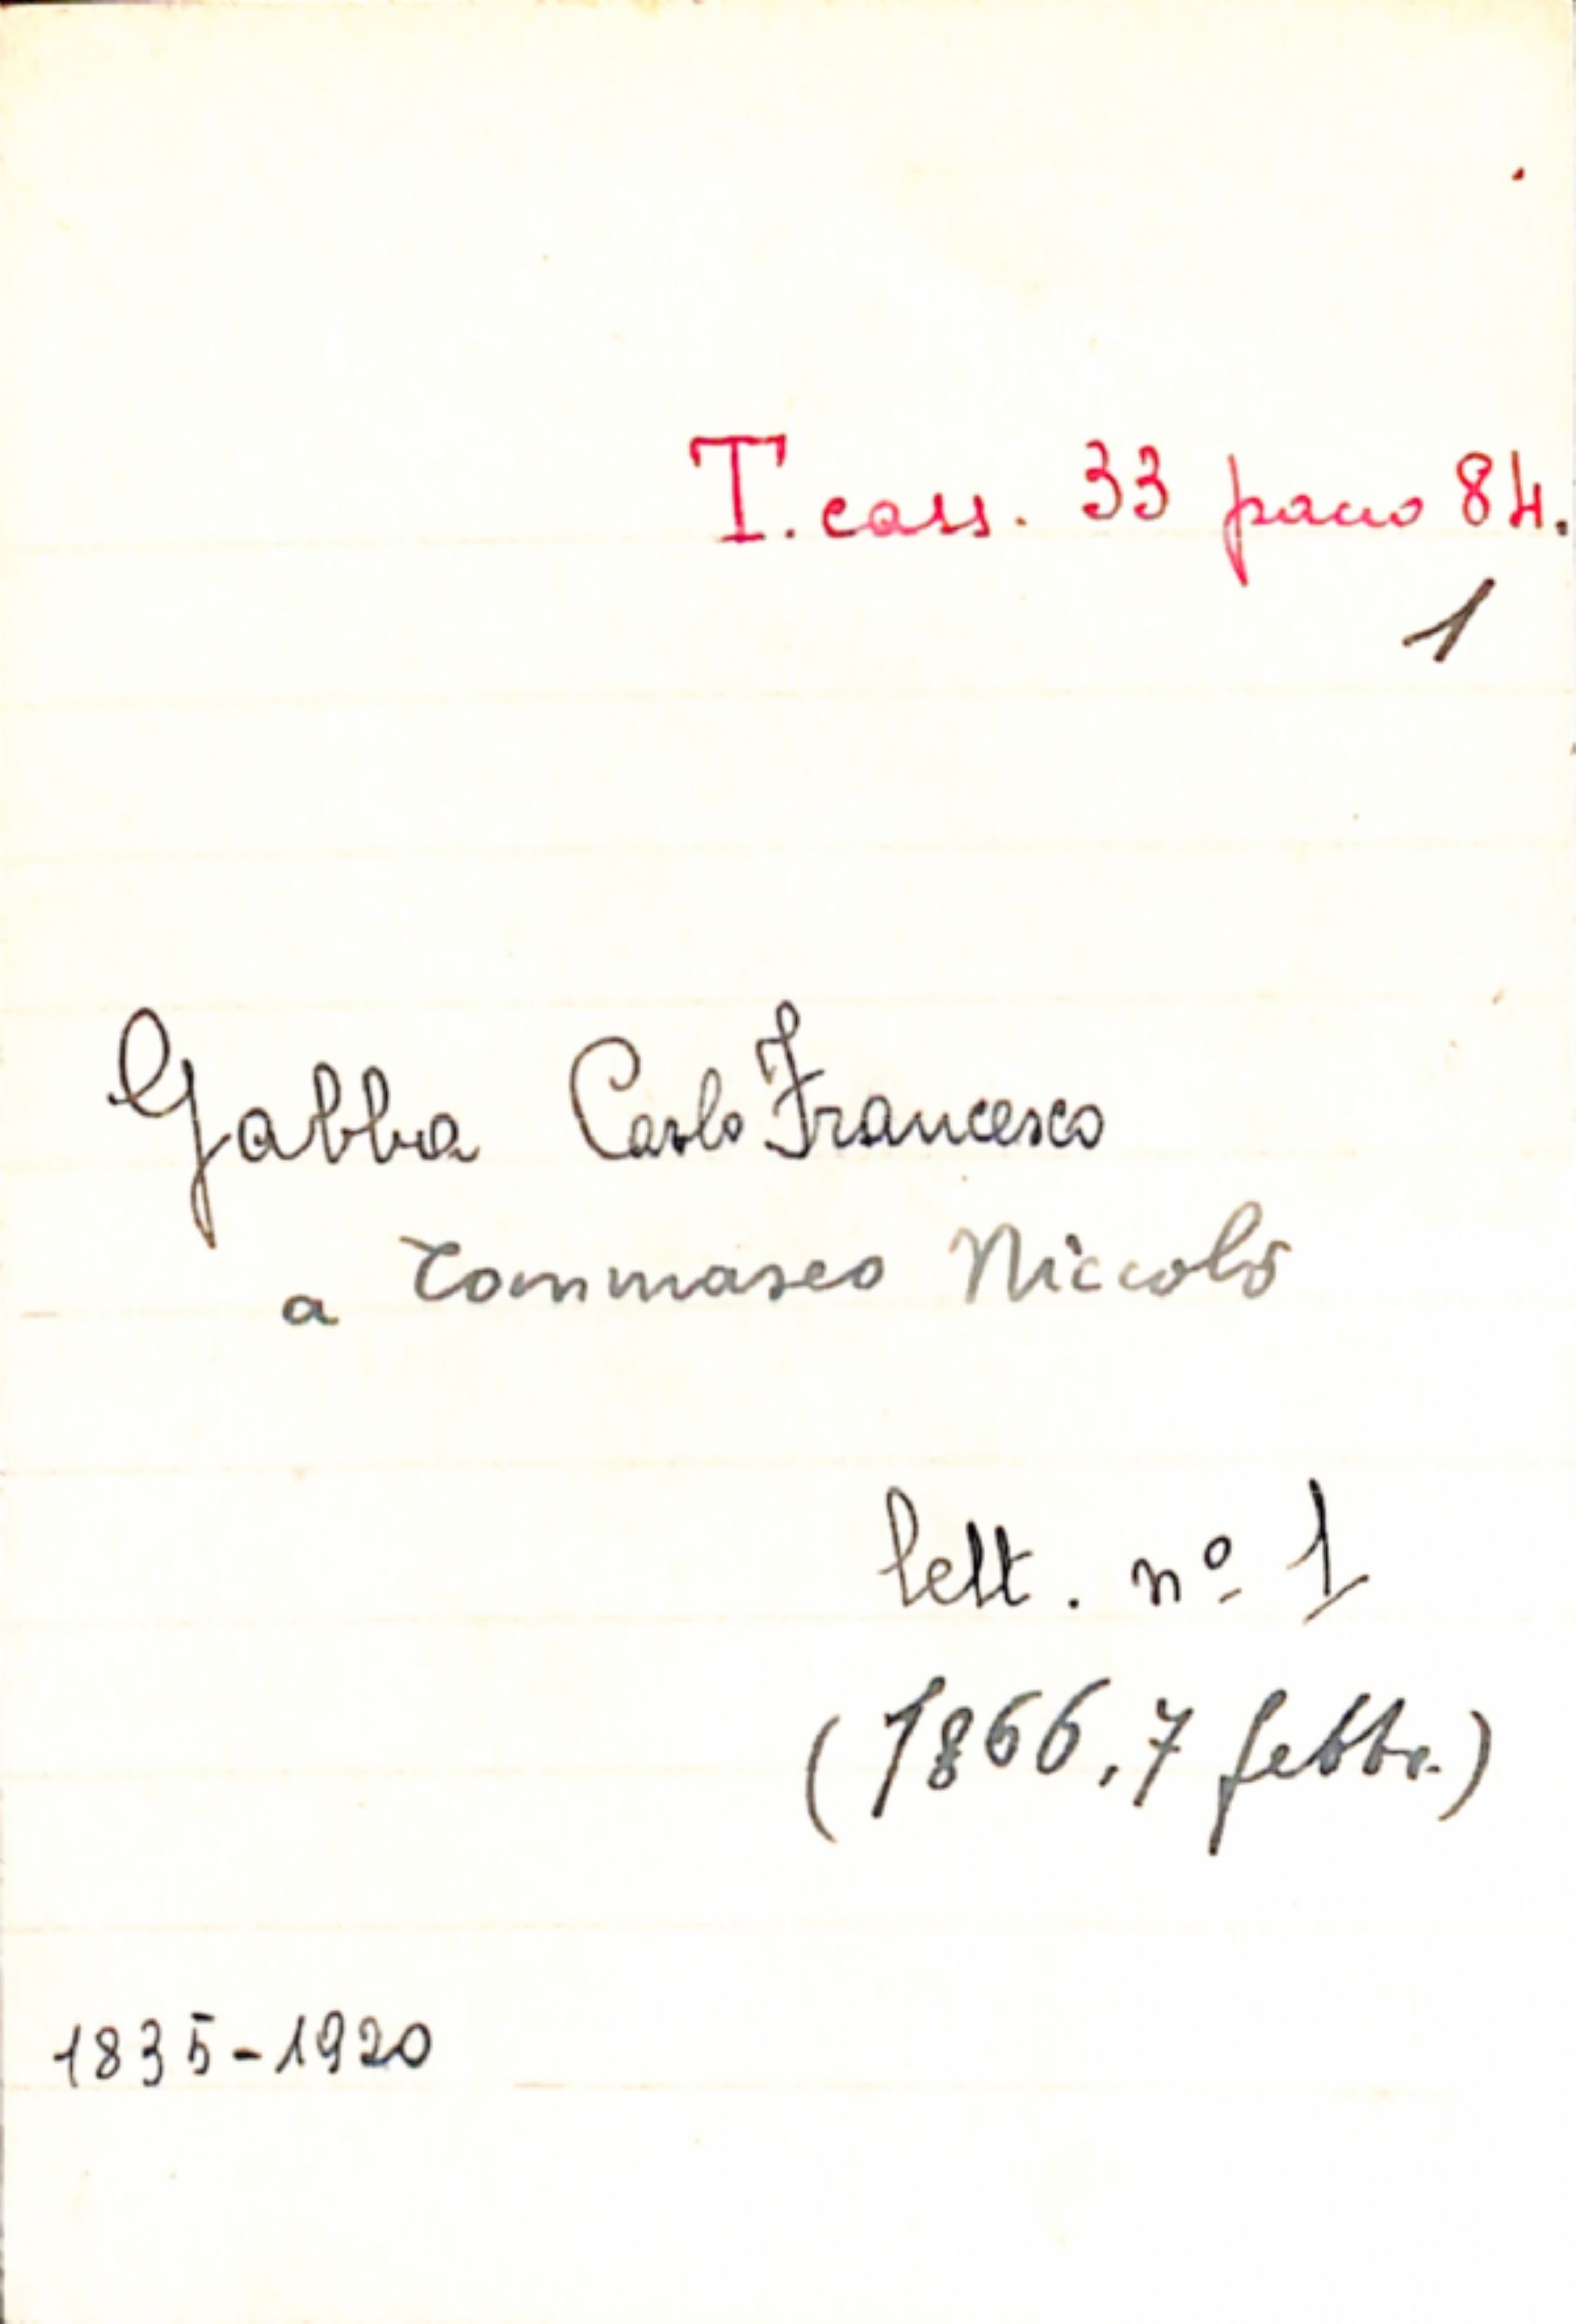 T. cass. 33 pacco 84.
1
Gabba Carlo Francesco
a Tommaseo Niccolò
lett. nº 1
(1866, 7 febbr.)
1835-1920